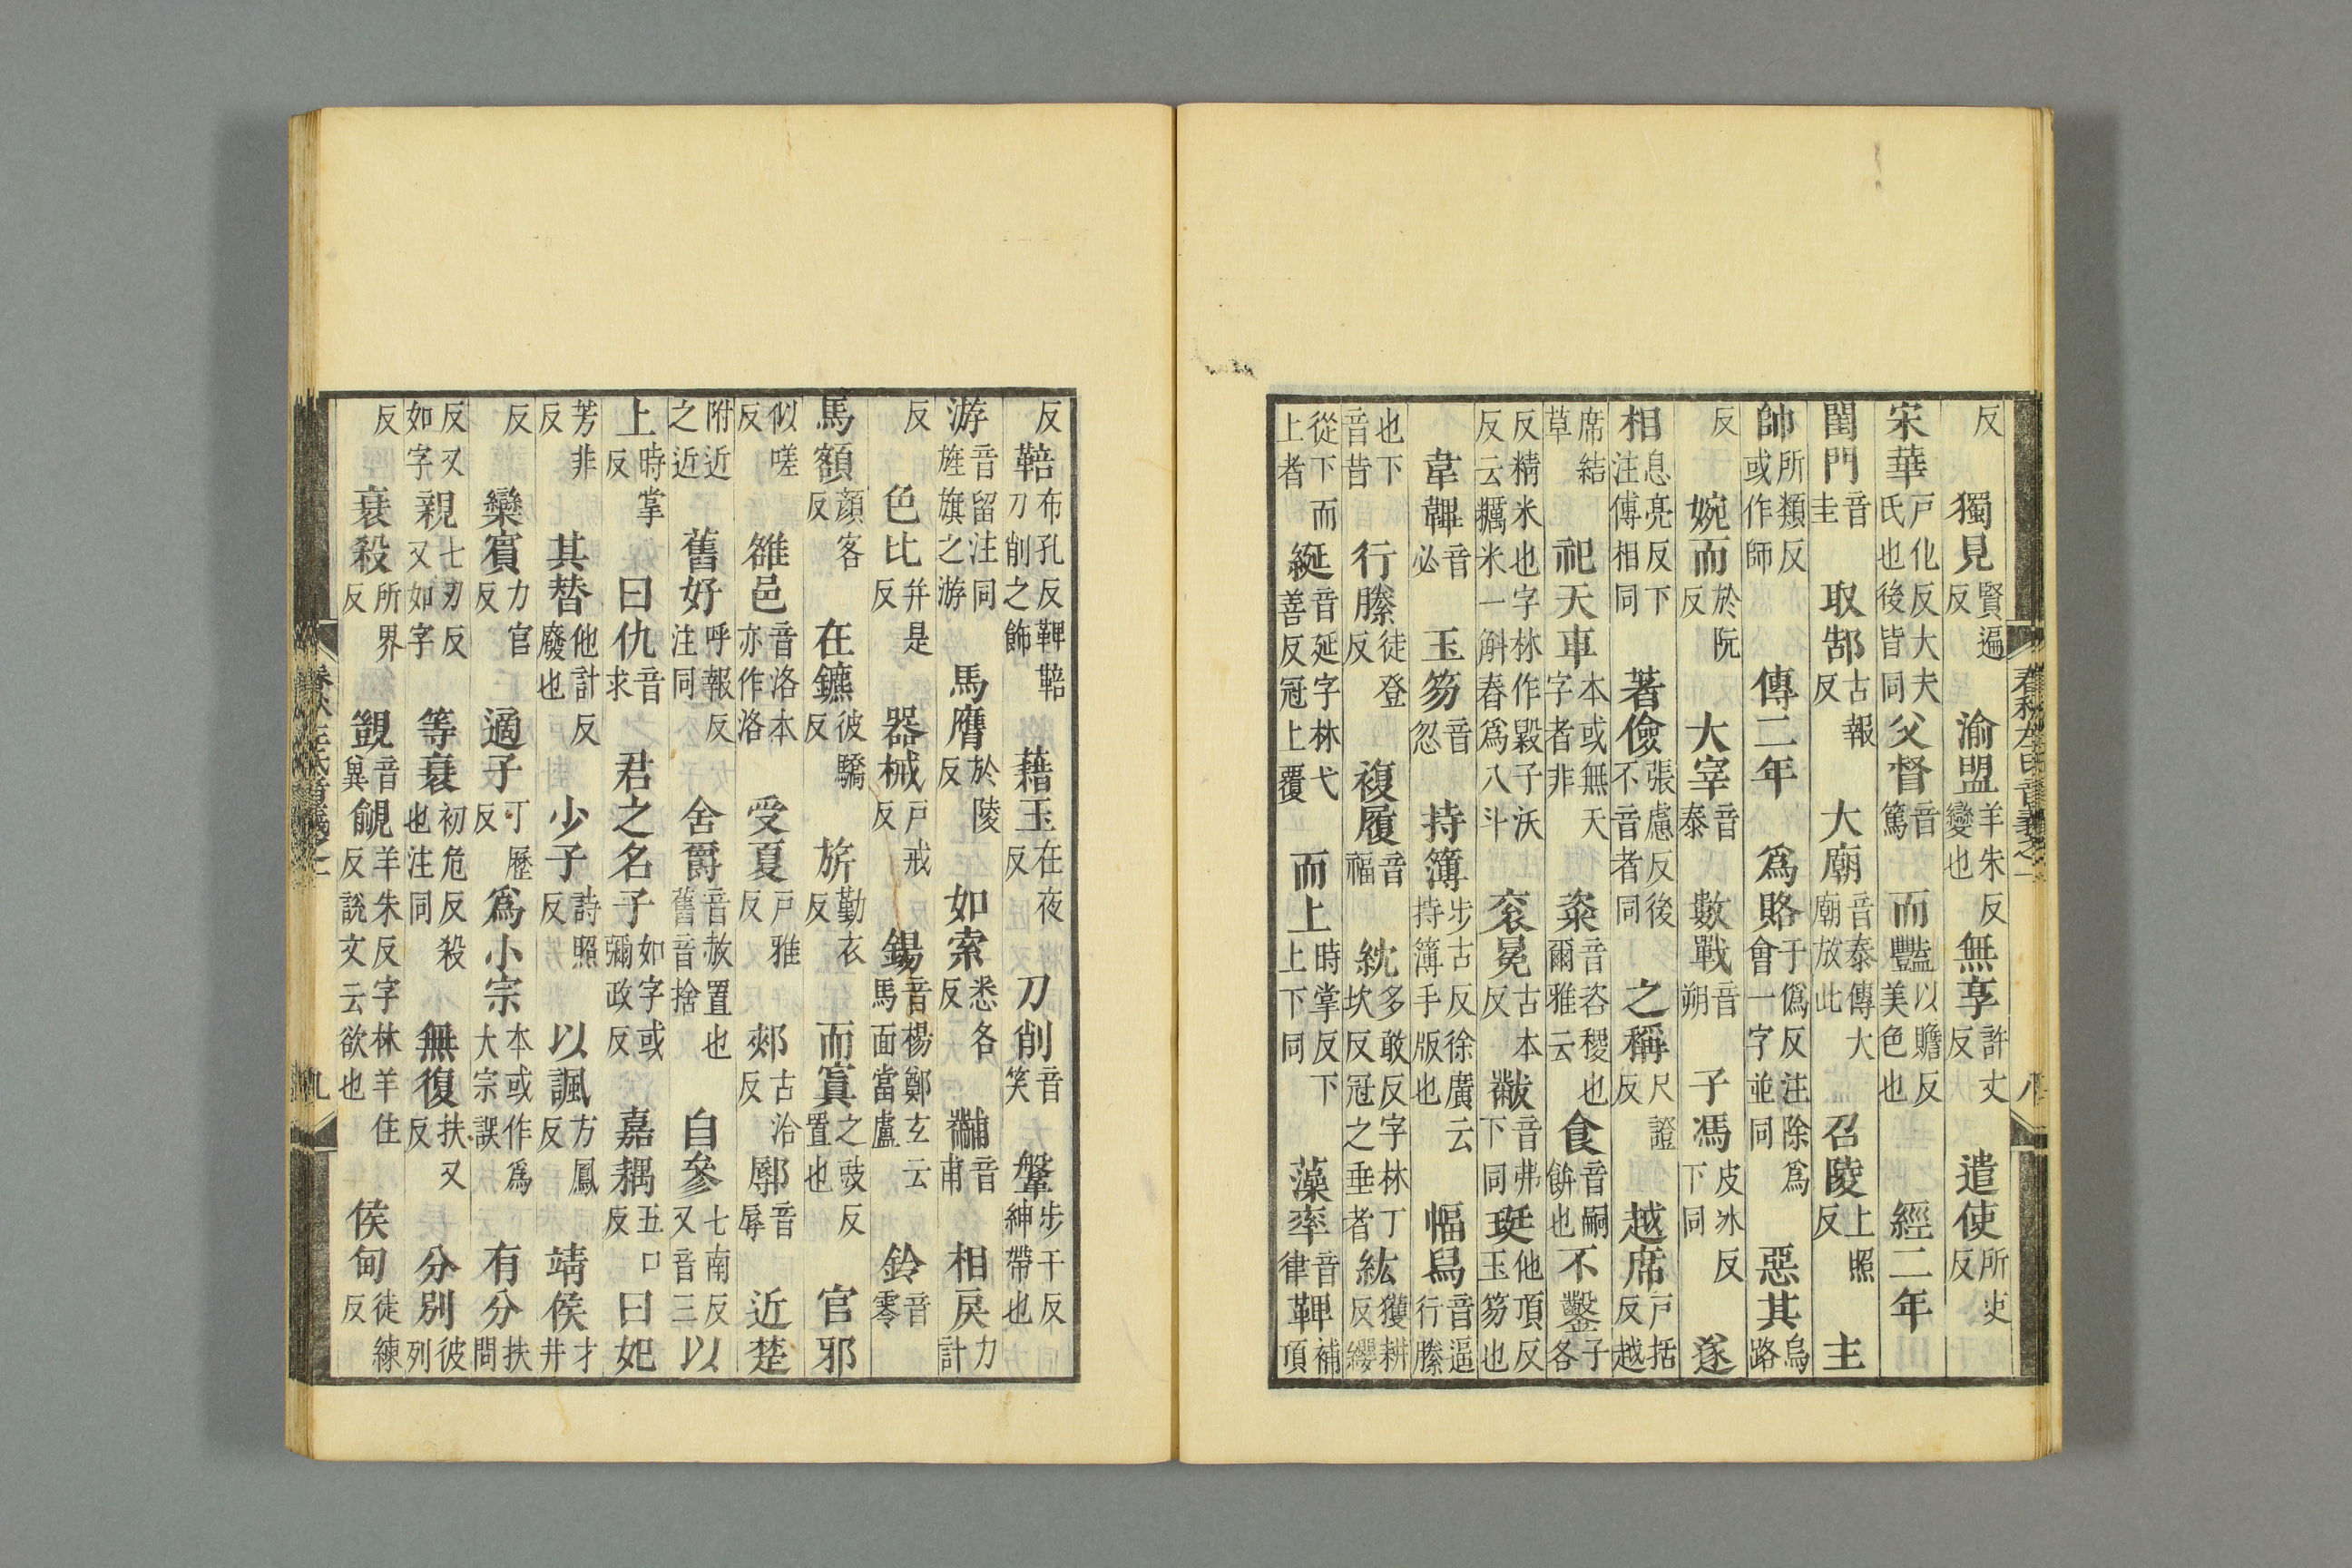 反獨見賢遍反渝盟羊朱反變也無享許丈反遣使所吏反
宋華戶化反大夫氏也後皆同父督音篤而豔以贍反美色也經二年
閨門音圭取郜古報反大廟音泰傳大廟放此召陵上照反主
帥所類反或作師傳二年爲賂于僞反注除爲會一字並同惡其烏路
反婉而於阮反大宰音泰數戰音朔子馮皮冰反下同遂
相息亮反下注傅相同著儉張慮反後不音者同之稱尺證反越席戶括反越
席結草祀天車本或無天字者非粢音咨稷也爾雅云食音嗣餅也不鑿子各
反精米也字林作毇子沃反云糲米一斛舂爲八斗衮冕古本反黻音弗下同珽他頂反玉笏也
韋鞸音必玉笏音忽持簿步古反徐廣云持簿手版也幅舄音逼行縢
也下音昔行縢徒登反複履音福紞多敢反字林丁坎反冠之垂者紘獲耕反纓
從下而上者綖音延字林弋善反冠上覆而上時掌反下上下同藻率音律鞞補頂
春秋左氏音義之一 八
反鞛布孔反鞞鞛刀削之飾藉玉在夜反刀削音笑鞶步干反紳帶也
游音留注同旌旗之游馬膺於陵反如索悉各反黼音甫相戾力計
反色比并是反器械戶戒反鍚音楊鄭玄云馬面當盧鈴音零
馬額顏客反在鑣彼驕反旂勤衣反而寘之豉反置也官邪
似嗟反雒邑音洛本亦作洛受夏戶雅反郟古洽反鄏音辱近楚
附近之近舊好呼報反注同舍爵音赦置也舊音捨自參七南反又音三以
上時掌反曰仇音求君之名子如字或彌政反嘉耦五口反曰妃
芳非反其替他計反廢也少子詩照反以諷方鳳反靖侯才井
反欒賓力官反適子丁歷反爲小宗本或作爲大宗誤有分扶問
反又如字親七刃反又如字等衰初危反殺也注同無復扶又反分別彼列
反衰殺所界反覬音冀覦羊朱反字林羊住反說文云欲也侯甸徒練反
春秋左氏音義之一 九